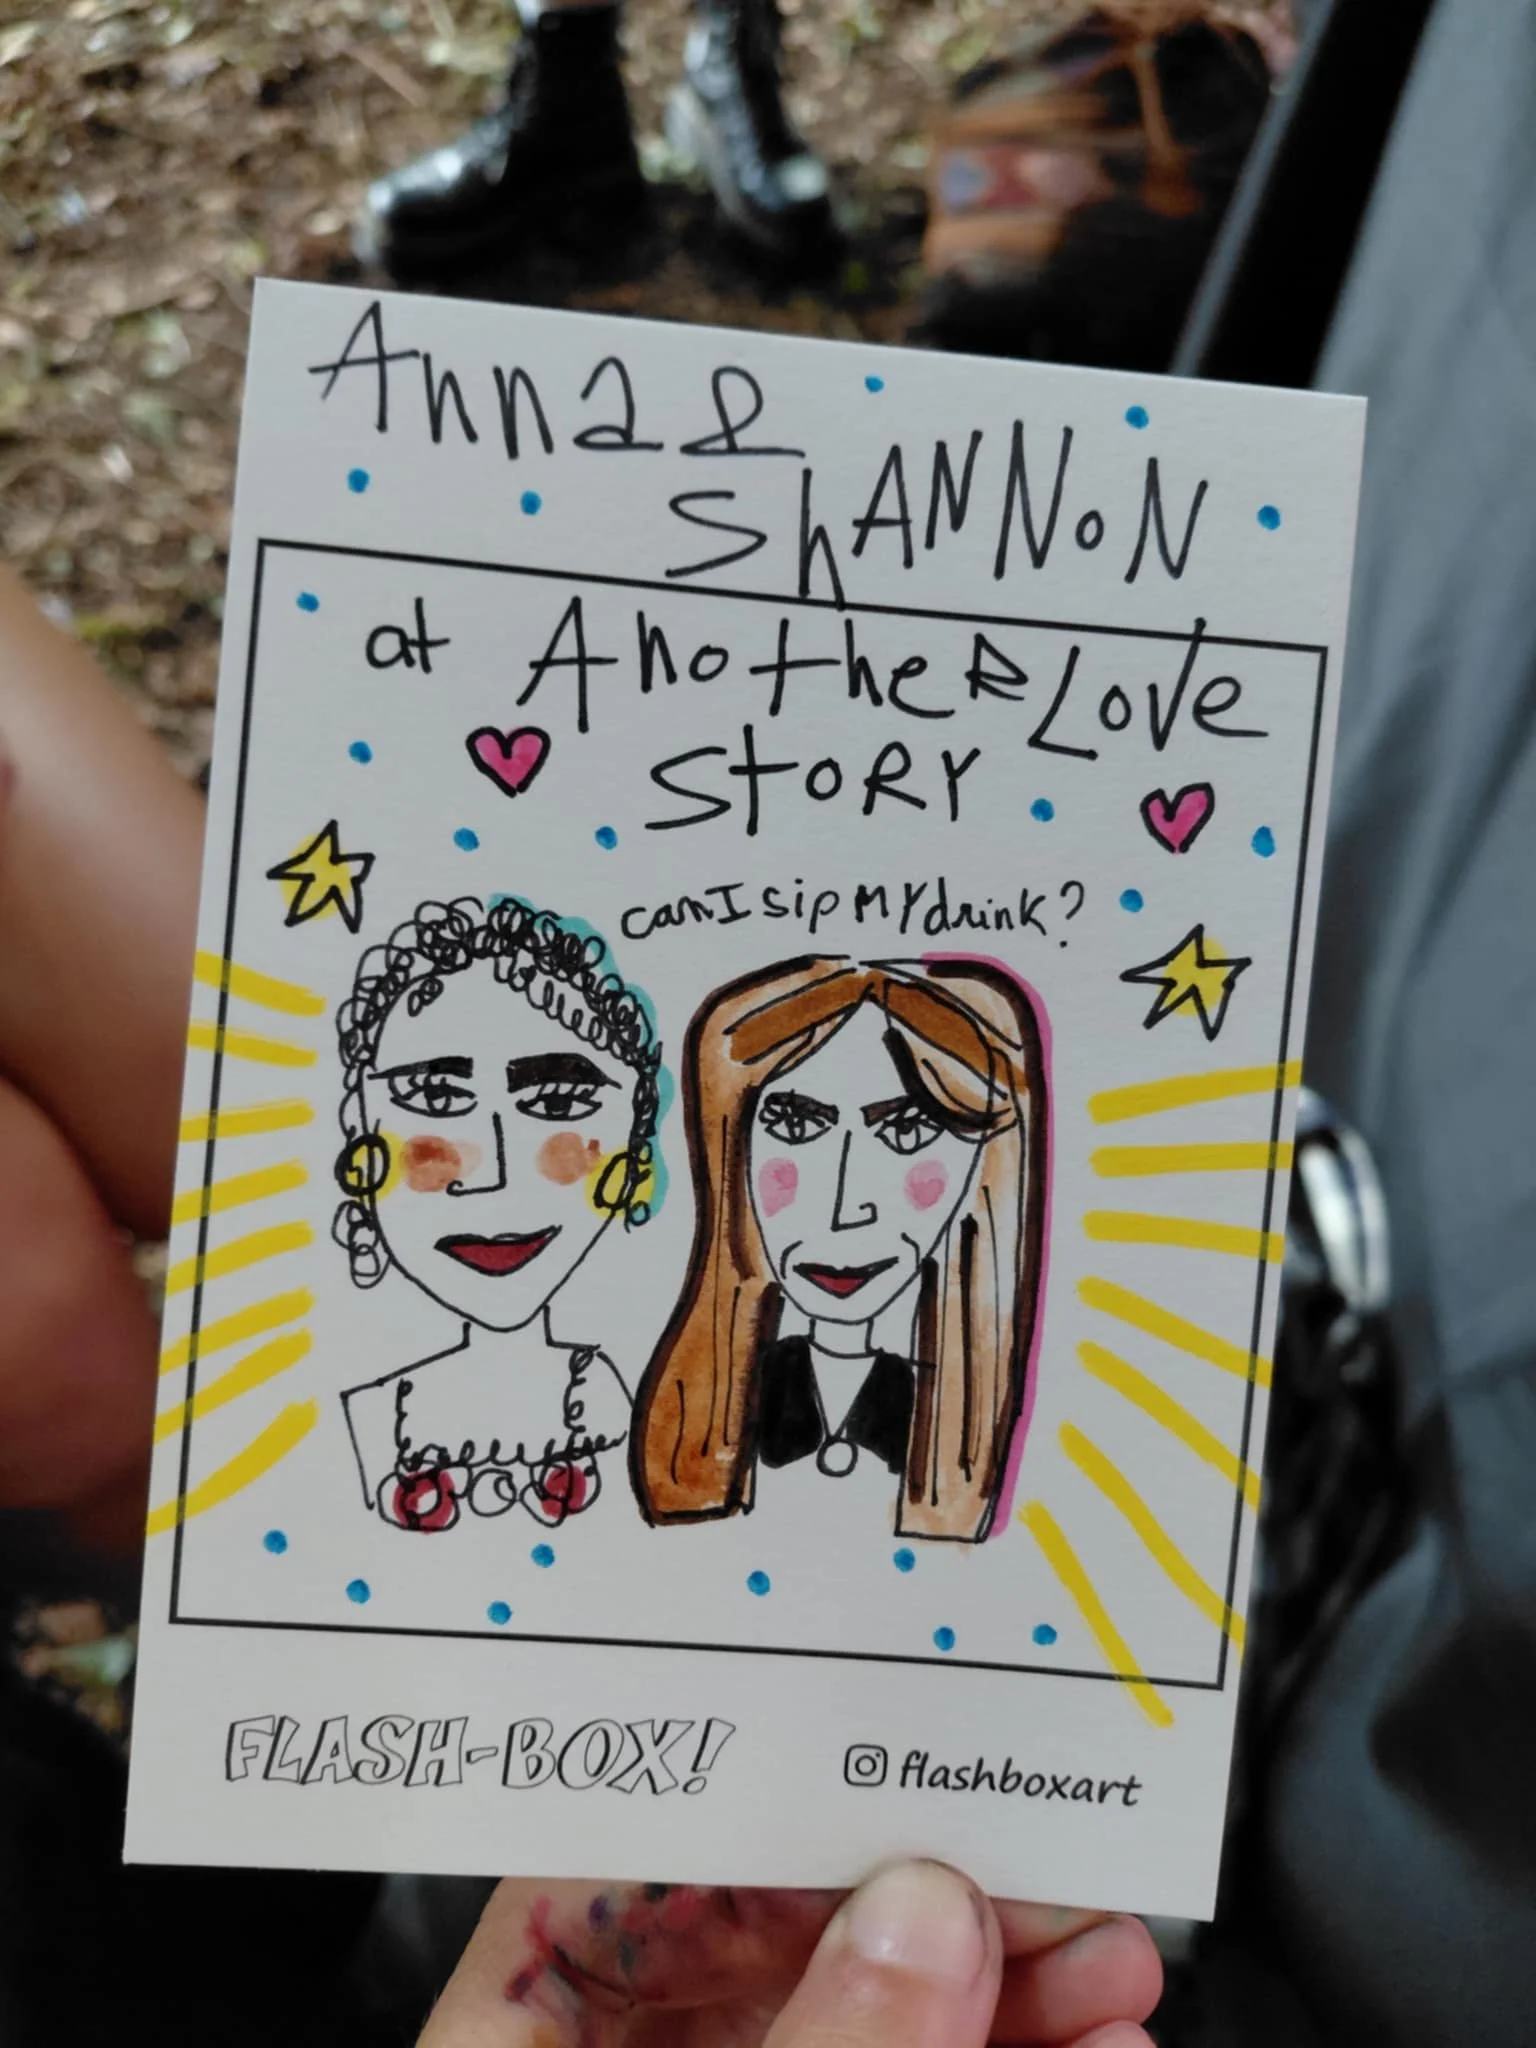 Anna &
ShANNoN
at AnotheR Love
StoRY
can I sip MY drink?
FLASH-BOX!
flashboxart